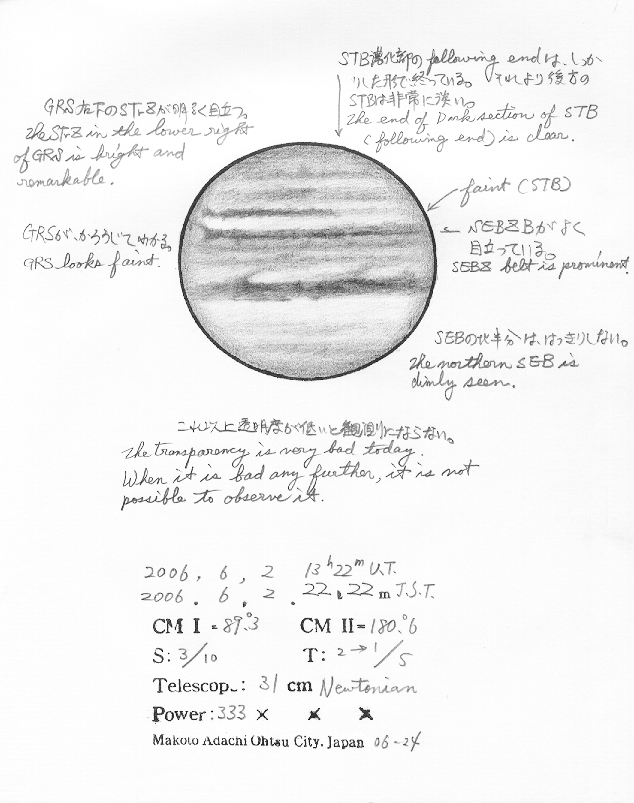 STB濃化部のfollowing endは、しっか
りした形で終っている。それより後方の
STBは非常に淡い。
The end of Dark section of STB
(following end) is clear.
GRS左下のSTrZが明るく目立つ。
The STrZ in the lower right
of GRS is bright and
remarkable.
faint (STB)
GRSが、かろうじてわかる。
GRS looks faint.
SEBZBがよく
目立っている。
SEBZ belt is prominent.
SEBの北半分は、はっきりしない。
The northern SEB is
dimly seen.
これ以上透明度が低いと観測にならない。
The transparency is very bad today.
When it is bad any further, it is not
possible to observe it.
2006. 6. 2 13h22m U.T.
2006. 6. 2. 22h22m J.S.T.
CM I = 89.°3 CM II = 180.°6
S: 3/10 T: 2→1/5
Telescop.: 31 cm Newtonian
Power: 333 × × ×
Makoto Adachi Ohtsu City. Japan 06-24